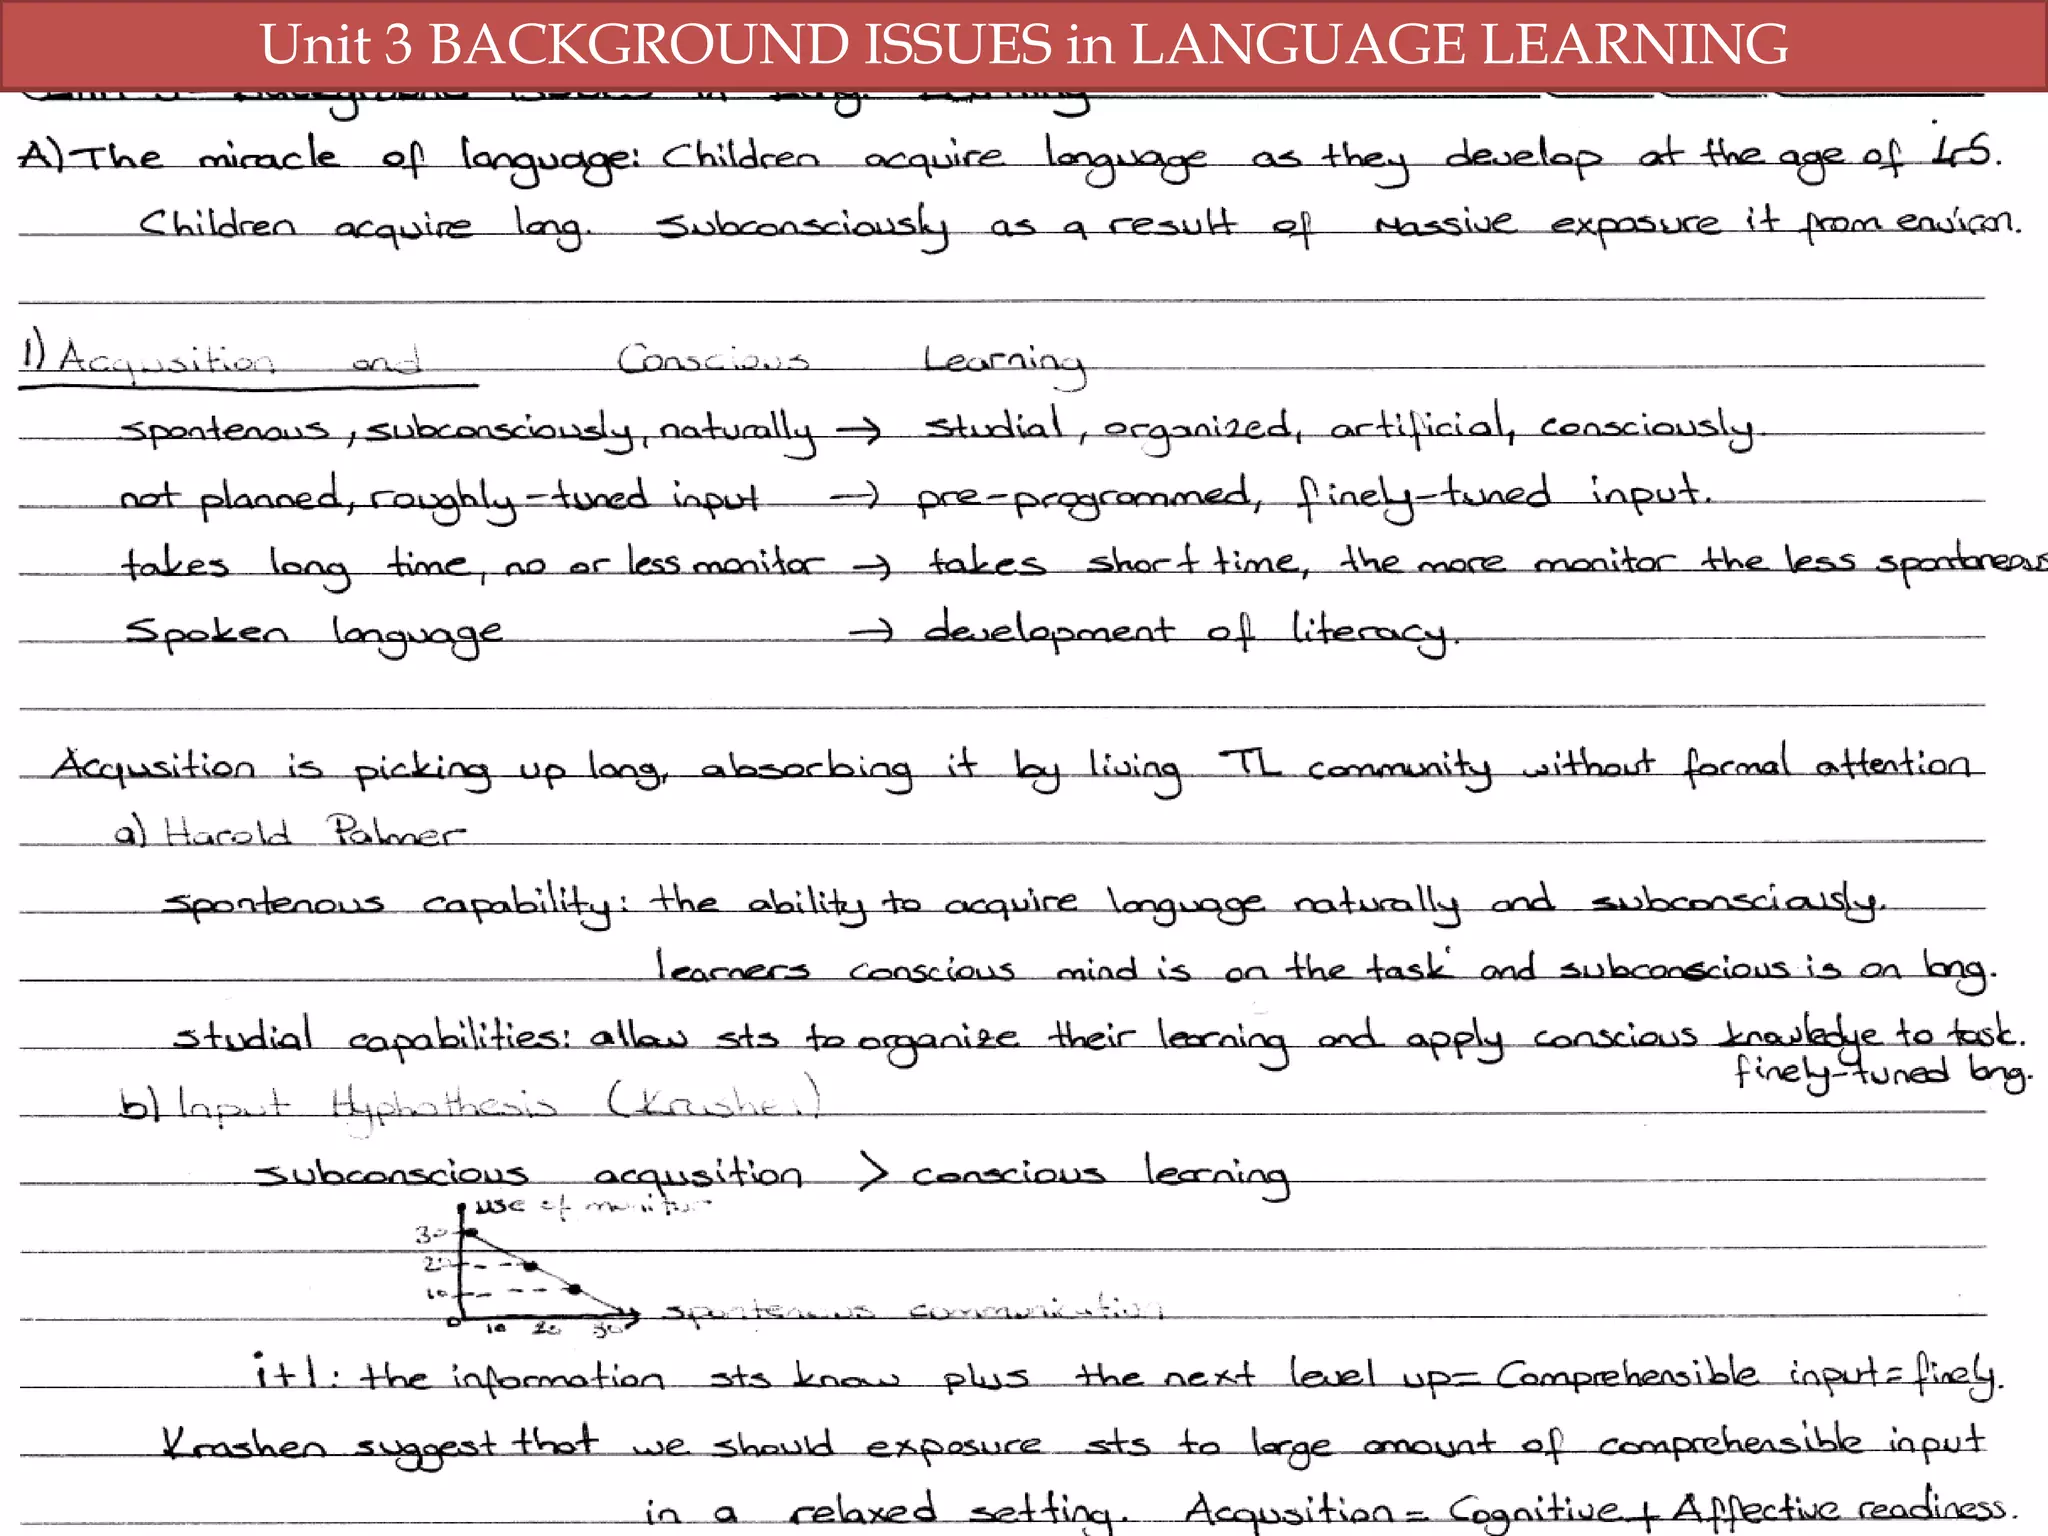 Unit 3 BACKGROUND ISSUES in LANGUAGE LEARNING
A) The miracle of language: Children acquire language as they develop at the age of
Children acquire lang. subconsciously as a result of massive exposure it from environ.
1) Acqusition and Conscious Learning
spontenous, subconsciously, naturally → studial, organized, artificial, consciously.
not planned, roughly-tuned input → pre-programmed, finely-tuned input.
takes long time, no or less monitor → takes short time, the more monitor the less spontaneous
Spoken language → development of literacy.
Acqusition is picking up lang, absorbing it by living TL community without formal attention
a) Harold Palmer
spontenous capability: the ability to acquire language naturally and subconsciously.
learners conscious mind is on the task and subconscious is on lang.
studial capabilities: allow sts to organize their learning and apply conscious knowledge to task.
finely-tuned lang.
b) Input Hyphothesis (Krashen)
subconscious acqusition > conscious learning
use of monitor
30
20
10
0 10 20 30 spontenous communication
i+1: the information sts know plus the next level up = Comprehensible input = finely.
Krashen suggest that we should exposure sts to large amount of comprehensible input
in a relaxed setting. Acqusition = Cognitive + Affective readiness.